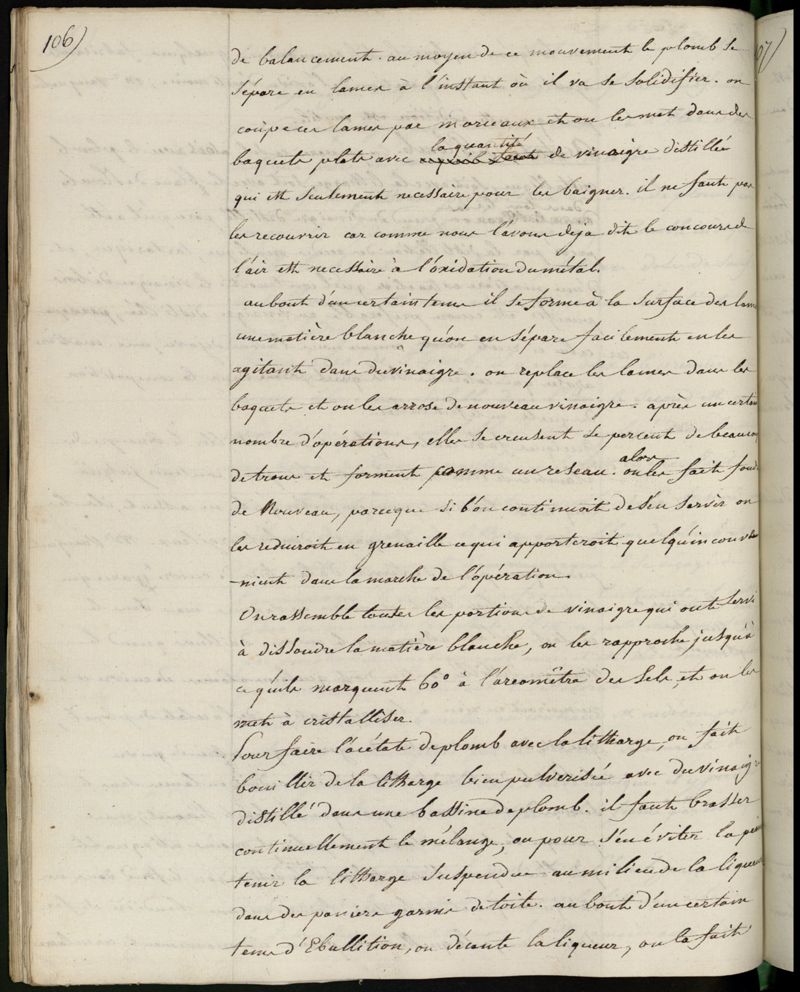 106)
de balancement. au moyen de ce mouvement le plomb se
sépare en lames à l'instant où il va se solidifier. on
coupe ces lames par morceaux et on les met dans des
la quantité
baquets plats avec de vinaigre distillé
qui est seulement necessaire pour les baigner. il ne faut pas
les recouvrir car comme nous l'avons deja dit le concours de
l'air est necessaire à l'oxidation du métal.
au bout d'un certain tems il se forme à la surface des lames
une matière blanche qu'on en sépare facilement en les
agitant dans du vinaigre. on replace les lames dans les
baquets et on les arrose de nouveau vinaigre. après un certain
nombre d'opérations, elles se creusent se percent de beaucoup
alors
de trous et forment comme un reseau. on les fait fondre
de Nouveau, parceque si l'on continuoit de s'en servir on
les reduiroit en grenaille ce qui apporteroit quelqu'inconve
-nient dans la marche de l'opération.
On rassemble toutes les portions de vinaigre qui ont servi
à dissoudre la matière blanche, on les rapproche jusqu'à
ce qu'ils marquent 60° à l'areomêtre des Sels, et on les
met à cristalliser.
Pour faire l'acétate de plomb avec la litharge, on fait
bouillir de la litharge bien pulverisée avec du vinaigre
distillé dans une bassine de plomb. il faut brasser
continuellement le mélange, ou pour s'en éviter la peine
tenir la litharge suspendue au milieu de la liqueur
dans des paniers garnis de toile. au bout d'un certain
tems d'Ebullition, on décante la liqueur, on la fait